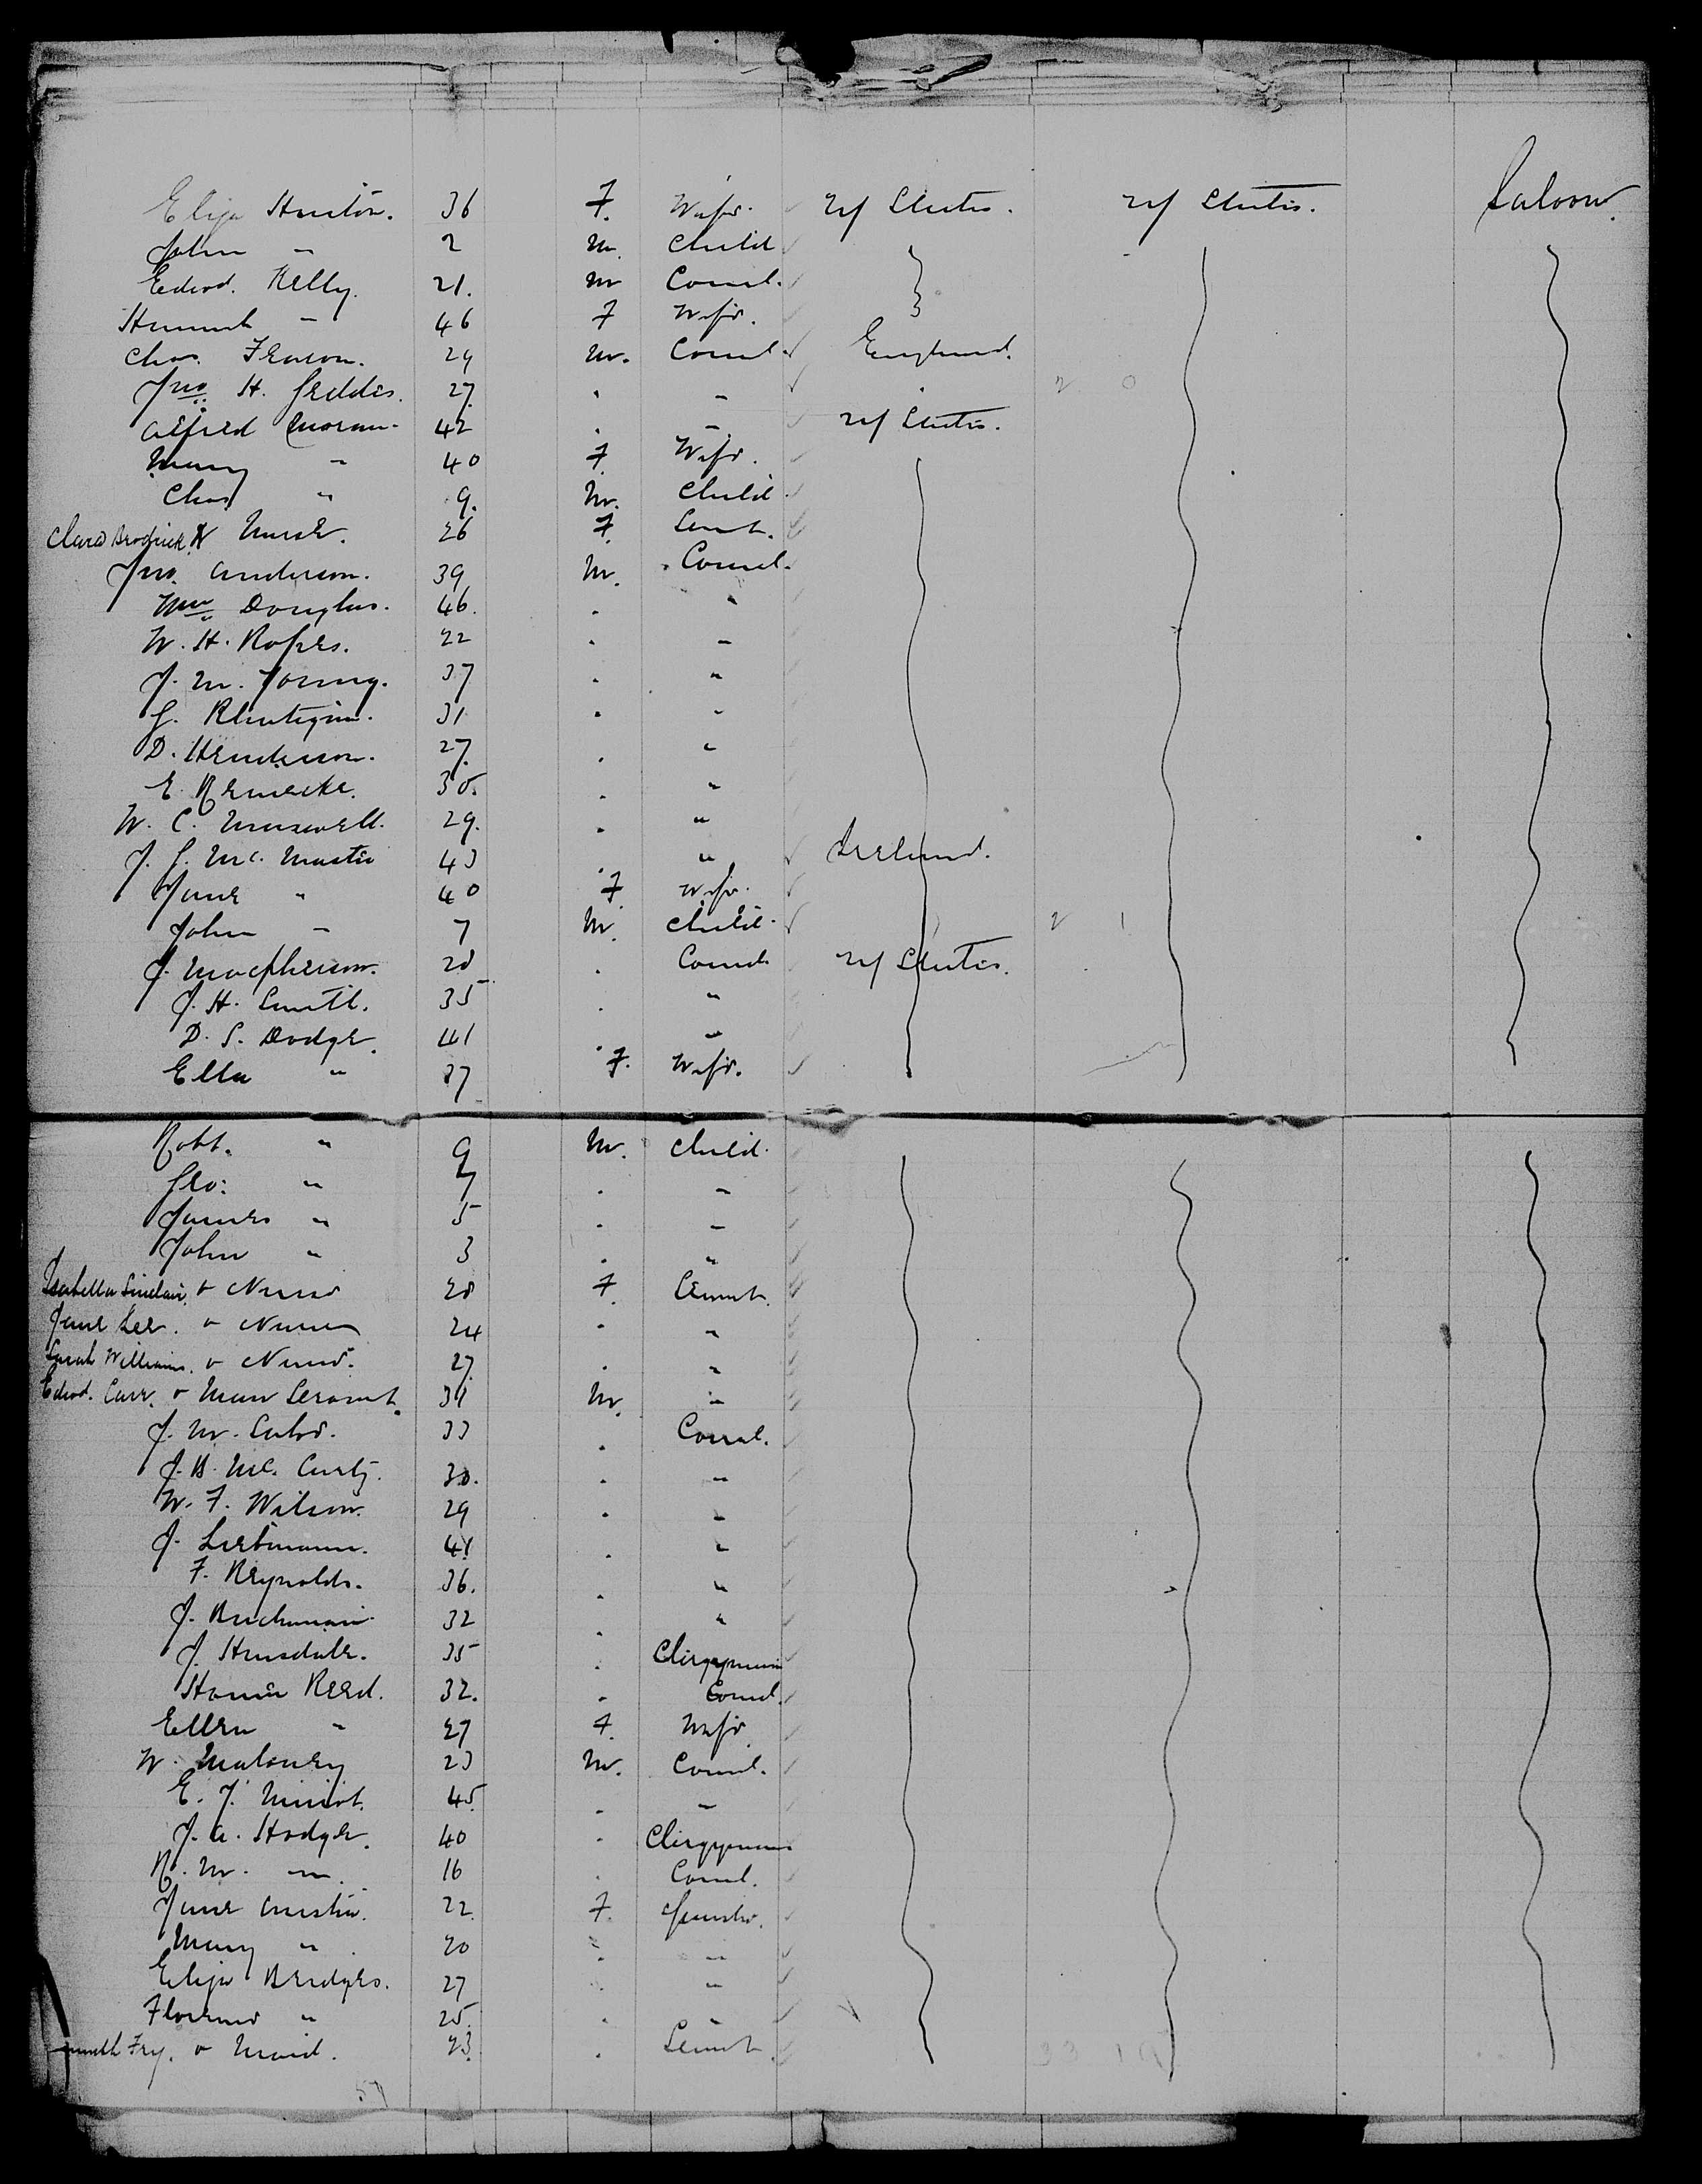 Eliza Huston. 36 F. Wife. U/ States. U/ States. Saloon.
John " 2 M. Child
Edwd. Kelly. 21. M Coml.
Hannah " 46 F Wife.
Chas. Fearon. 29 M. Coml. England.
Jno. H. Geddis. 27. . " . 2 0
Alfred Moran. 42 . " U/ States.
Mary " 40 F. Wife.
Chas " 9. M. Child
Clara Brodrick & Nurse. 26 F. Servt.
Jno. Anderson. 39 M. Coml.
Wm. Douglas. 46. . "
W. H. Ropes. 22 . "
J. M. Young. 37 . "
G. 31 . "
D. Henderson. 27. . "
E. Reinecke. 30. . "
W. C. Maxwell. 29. . "
J. G. Mc. Master 43 . " Ireland.
Jane " 40 F Wife.
John " 7 M. Child. 2 1
J. Macpherson. 28 . Coml. U/ States.
J. H. Smith. 35 . "
D. S. Dodge. 41 . "
Ella " 37 F. Wife.
Robt. " 9 M. Child.
Geo: " 7 . "
James " 5 . "
John " 3 . "
Isabella Sinclair. & Nurse 28 F. Servnt.
Jane Lee. & Nurse 24 . "
Sarah Williams. & Nurse. 27. . "
Edwd. Carr. & Man Servant. 31 M. "
J. M. 33 . Coml.
J. B. Mc. Curty. 30. . "
W. F. Wilson. 29 . "
J. Liebmann. 41. . "
F. Reynolds. 36. . "
J. Buchanan. 32 . "
J. Hinsdale. 35 . Clergyman
Homer Reed. 32. . Coml.
Ellen " 27 F. Wife
W. Maloney 23 M. Coml.
E. J. 45. . "
J. A. Hodge. 40 . Clergyman
R. M. " 16 . Coml.
Jane Austin. 22. F. Spinster.
Mary " 20 . "
Eliza Bridges. 27 . "
Florence " 25. . "
Fry. & Maid. 23. . Servnt